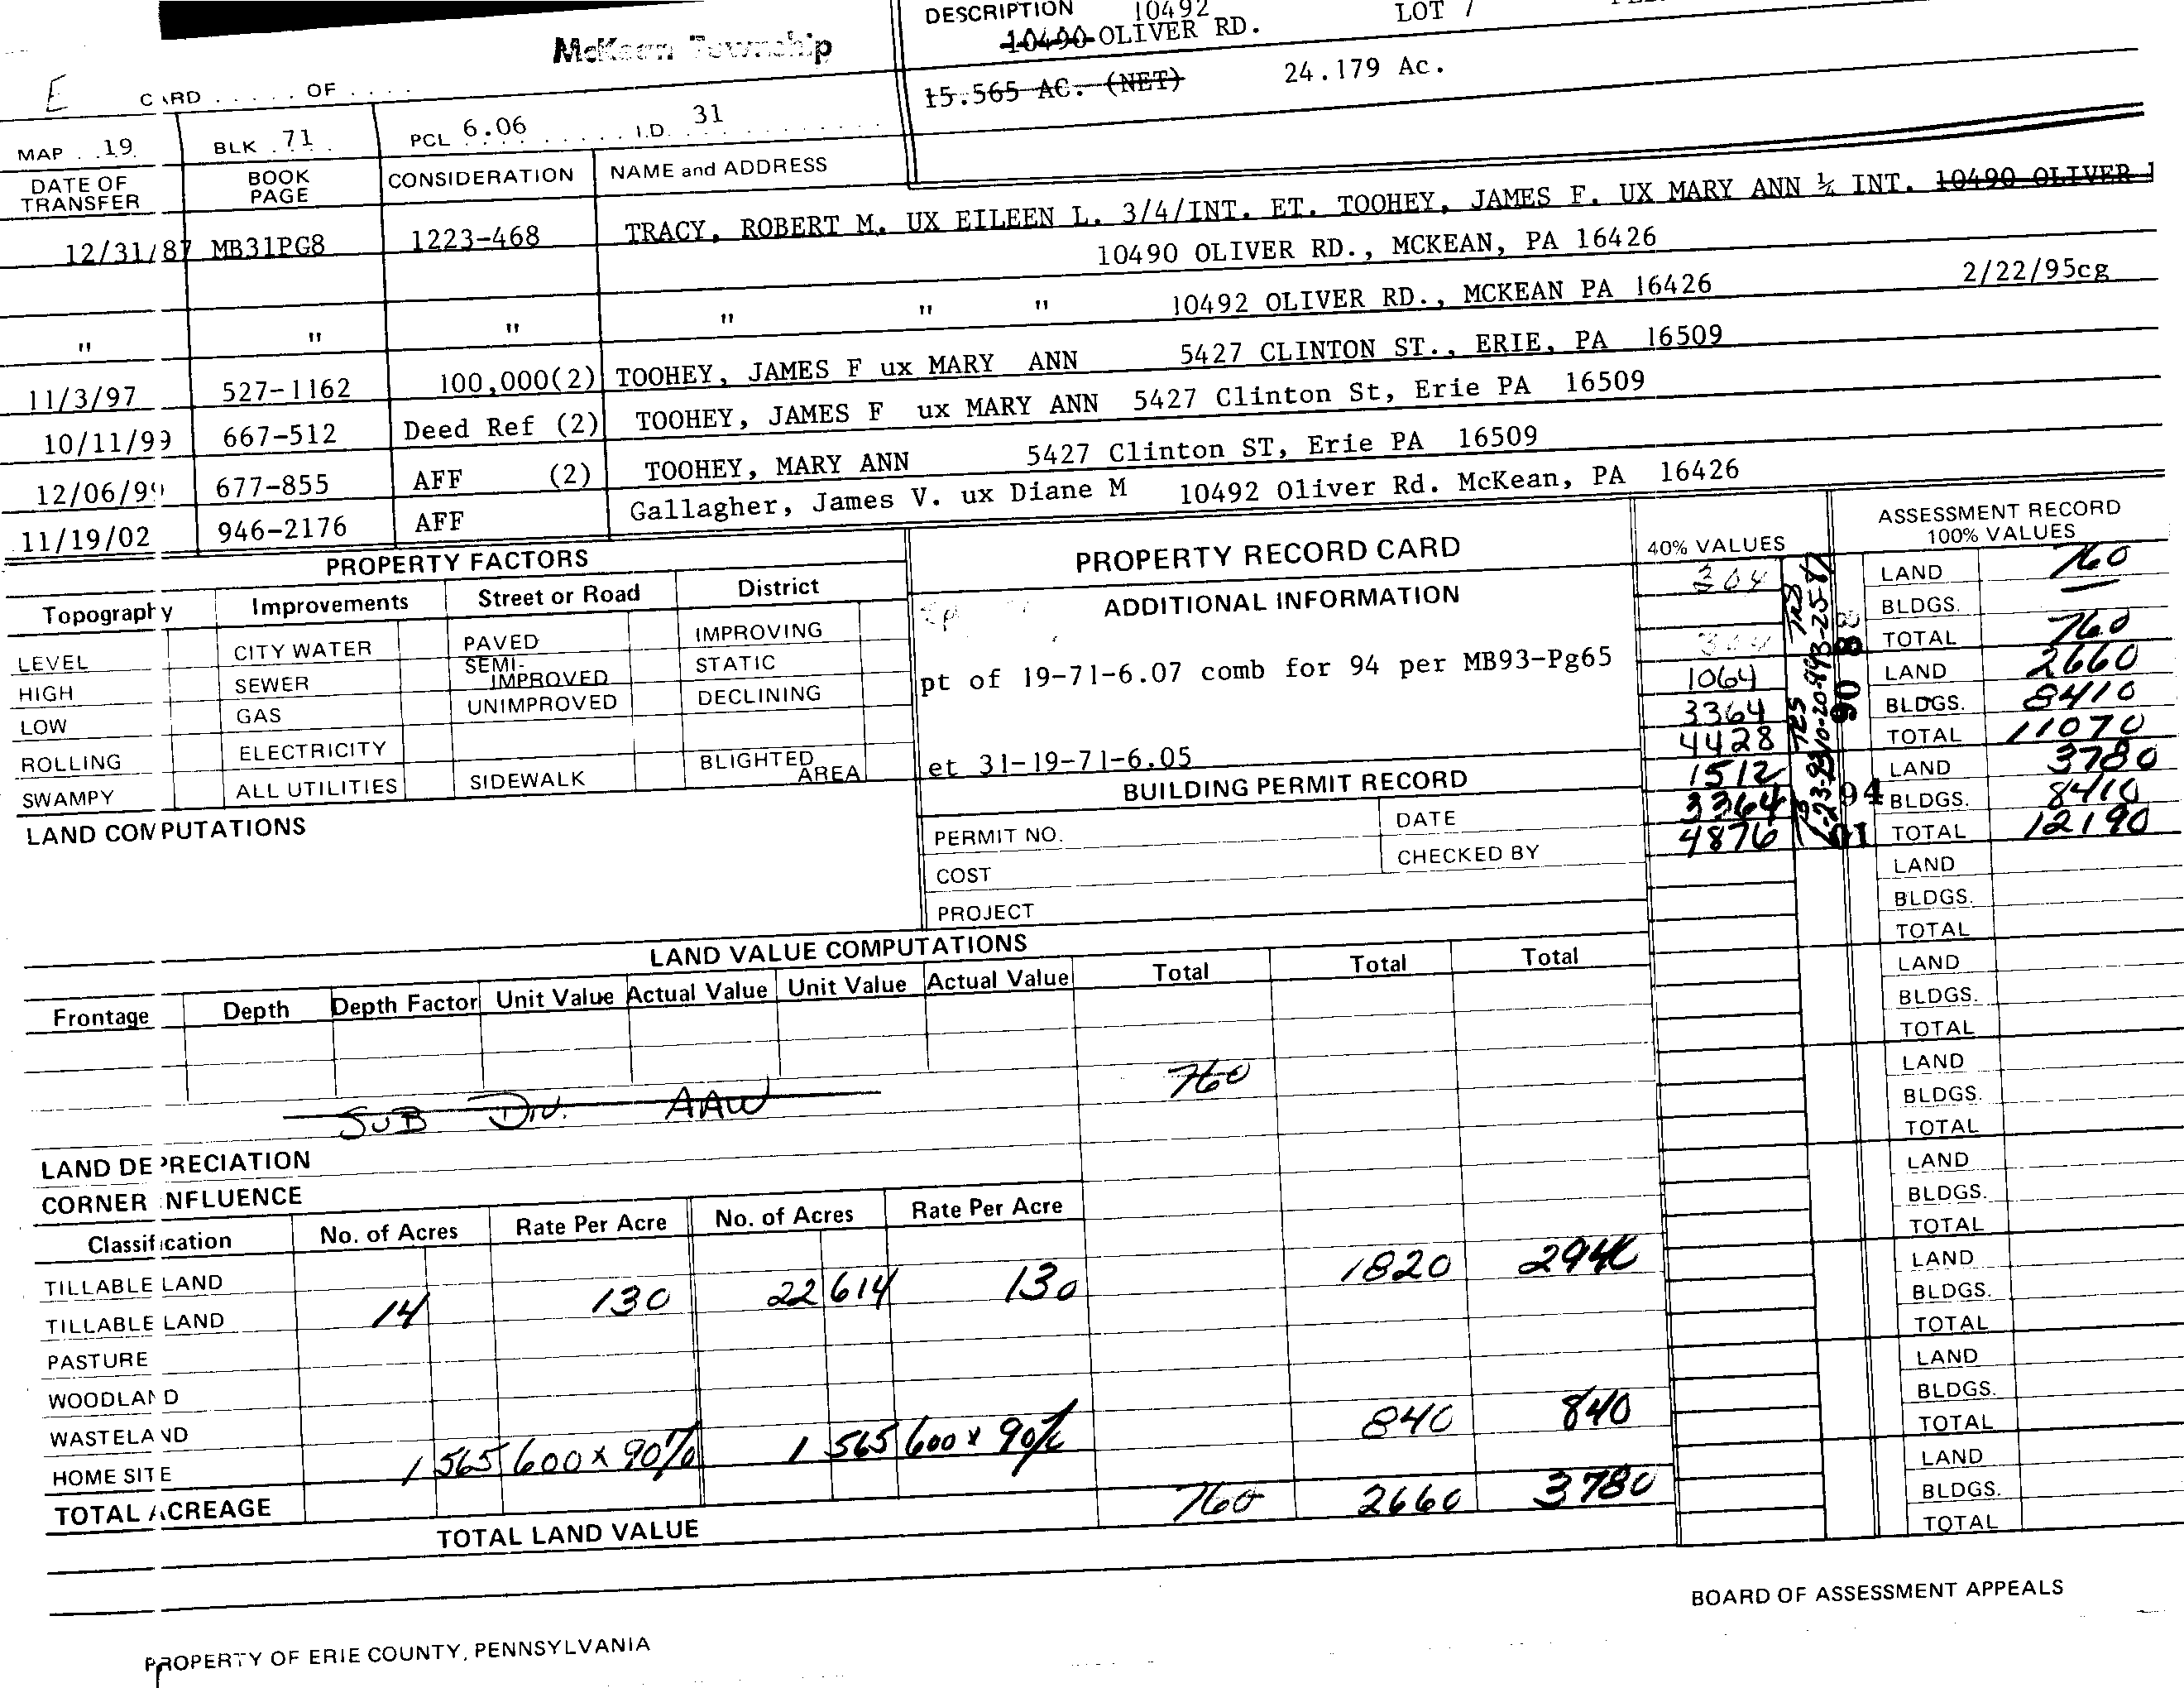 DESCRIPTION 10492
McKean Township
10490 OLIVER RD. LOT 7
E CARD . . . . . OF . . . .
15.565 AC. (NET) 24.179 Ac.
MAP . . 19. BLK . 71 . PCL 6.06 . . . . . I.D. 31
DATE OF TRANSFER BOOK PAGE CONSIDERATION NAME and ADDRESS
12/31/87 MB31PG8 1223-468 TRACY, ROBERT M. UX EILEEN L. 3/4/INT. ET. TOOHEY, JAMES F. UX MARY ANN ¼ INT. 10490 OLIVER
10490 OLIVER RD., MCKEAN, PA 16426
" " " " " " 10492 OLIVER RD., MCKEAN PA 16426 2/22/95cg
11/3/97 527-1162 100,000(2) TOOHEY, JAMES F ux MARY ANN 5427 CLINTON ST., ERIE, PA 16509
10/11/99 667-512 Deed Ref (2) TOOHEY, JAMES F ux MARY ANN 5427 Clinton St, Erie PA 16509
12/06/99 677-855 AFF (2) TOOHEY, MARY ANN 5427 Clinton ST, Erie PA 16509
11/19/02 946-2176 AFF Gallagher, James V. ux Diane M 10492 Oliver Rd. McKean, PA 16426
PROPERTY FACTORS
Topography Improvements Street or Road District
LEVEL CITY WATER PAVED IMPROVING
HIGH SEWER SEMI-IMPROVED STATIC
LOW GAS UNIMPROVED DECLINING
ROLLING ELECTRICITY BLIGHTED AREA
SWAMPY ALL UTILITIES SIDEWALK
LAND COMPUTATIONS
PROPERTY RECORD CARD
ADDITIONAL INFORMATION
pt of 19-71-6.07 comb for 94 per MB93-Pg65
et 31-19-71-6.05
BUILDING PERMIT RECORD
PERMIT NO. DATE
COST CHECKED BY
PROJECT
40% VALUES
304
304
1064
3364
4428
1512
3364
4876
88
90
94
ASSESSMENT RECORD
100% VALUES
LAND 760
BLDGS. —
TOTAL 760
LAND 2660
BLDGS. 8410
TOTAL 11070
LAND 3780
BLDGS. 8410
TOTAL 12190
LAND
BLDGS.
TOTAL
LAND
BLDGS.
TOTAL
LAND
BLDGS.
TOTAL
LAND
BLDGS.
TOTAL
LAND
BLDGS.
TOTAL
LAND
BLDGS.
TOTAL
LAND
BLDGS.
TOTAL
LAND VALUE COMPUTATIONS
Frontage Depth Depth Factor Unit Value Actual Value Unit Value Actual Value Total Total Total
SUB DIV. AAW 760
LAND DEPRECIATION
CORNER INFLUENCE
Classification No. of Acres Rate Per Acre No. of Acres Rate Per Acre
TILLABLE LAND
TILLABLE LAND 14 130 22 614 130 1820 2940
PASTURE
WOODLAND
WASTELAND
HOME SITE 1 565 600 x 90% 1 565 600 x 90% 840 840
TOTAL ACREAGE
TOTAL LAND VALUE 760 2660 3780
BOARD OF ASSESSMENT APPEALS
PROPERTY OF ERIE COUNTY, PENNSYLVANIA